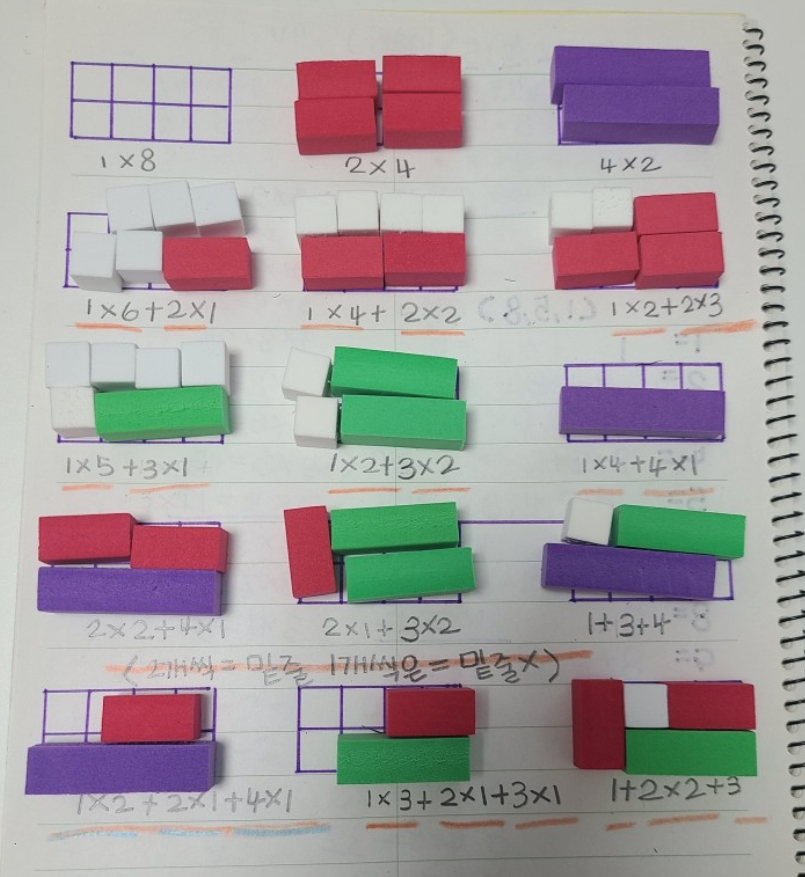 1×8 2×4 4×2
1×6+2×1 1×4+2×2 1×2+2×3
1×5+3×1 1×2+3×2 1×4+4×1
2×2+4×1 2×1+3×2 1+3+4
(2개씩=밑줄 1개씩은=밑줄X)
1×2+2×1+4×1 1×3+2×1+3×1 1+2×2+3